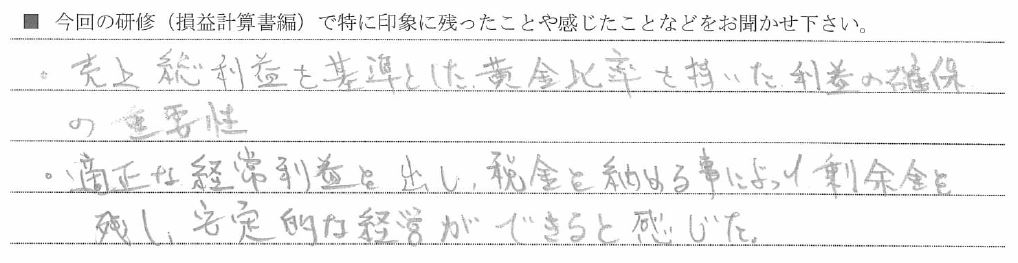 ■ 今回の研修（損益計算書編）で特に印象に残ったことや感じたことなどをお聞かせ下さい。
・売上総利益を基準とした黄金比率を持いた利益の確保
の重要性
・適正な経常利益を出し、税金を納める事によって剰余金を
残し、安定的な経営ができると感じた。